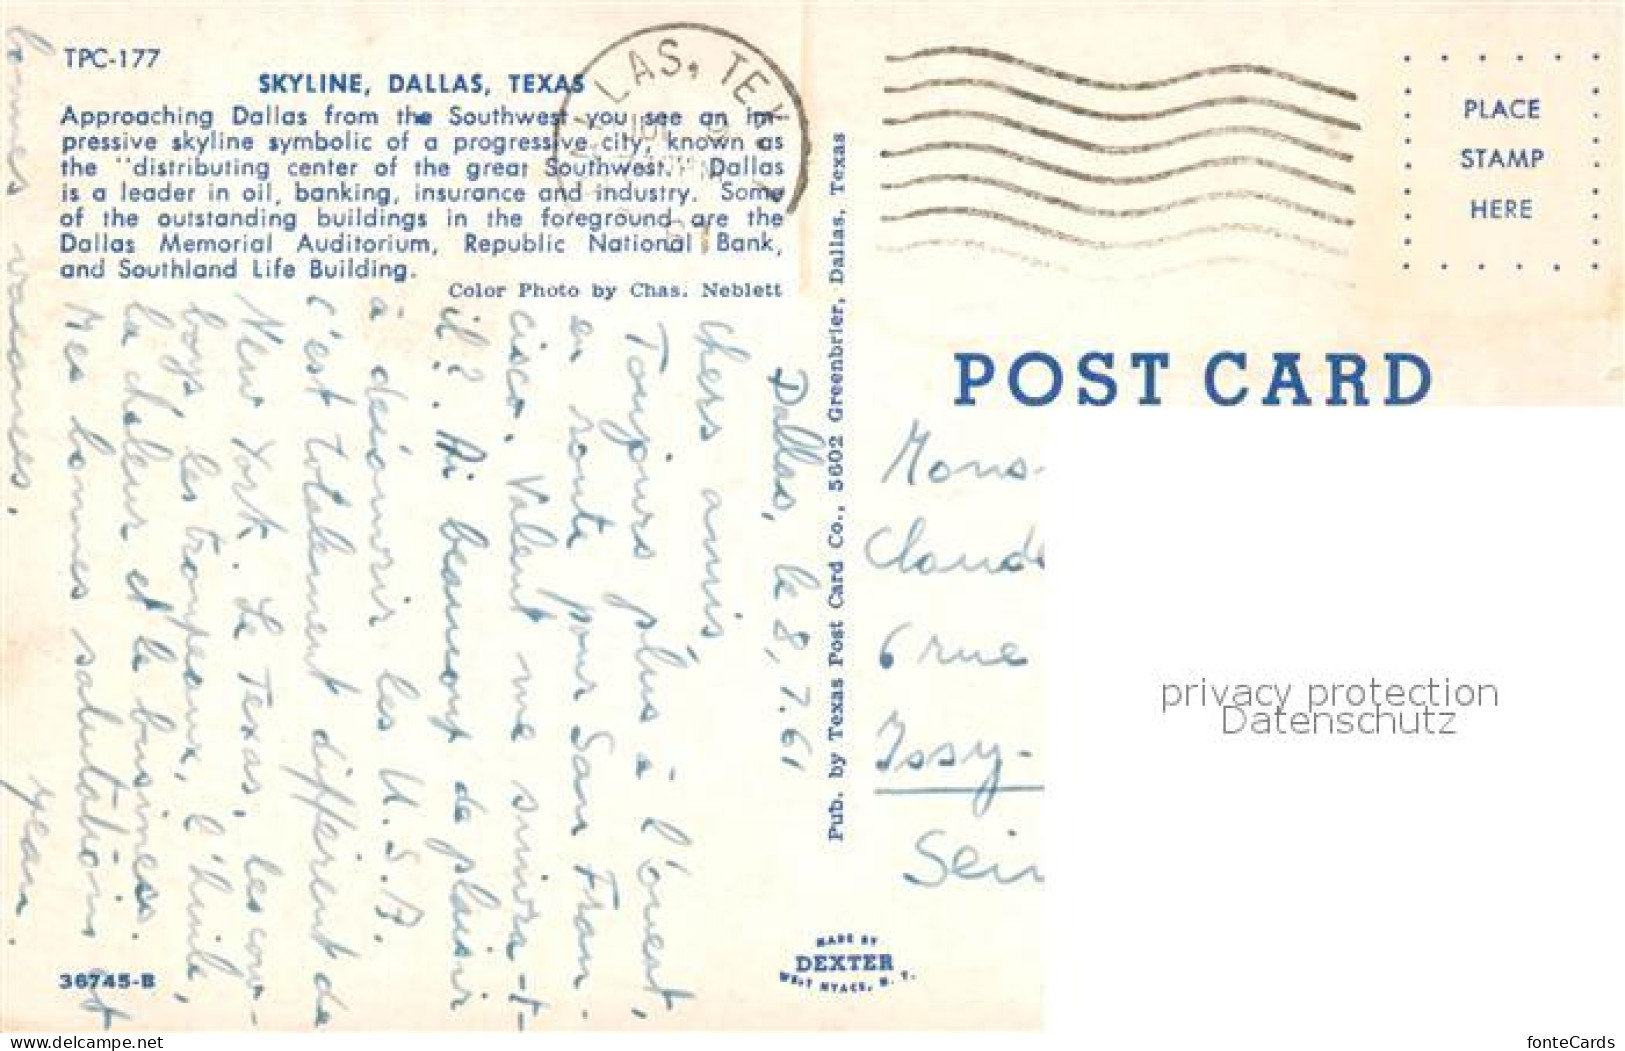 TPC-177
SKYLINE, DALLAS, TEXAS
Approaching Dallas from the Southwest you see an im-
pressive skyline symbolic of a progressive city, known as
the "distributing center of the great Southwest." Dallas
is a leader in oil, banking, insurance and industry. Some
of the outstanding buildings in the foreground are the
Dallas Memorial Auditorium, Republic National Bank,
and Southland Life Building.
Color Photo by Chas. Neblett
LAS, TEX
Dallas, le 8.7.61
Chers amis,
Toujours plus à l'ouest,
en route pour San Fran-
cisco. Valent me suivra-t-
il?. Ai beaucoup de plaisir
à découvrir les U.S.A.
C'est totalement différent de
New York. Le Texas, les cow-
boys, les troupeaux, l'huile,
la chaleur et le business.
Mes bonnes salutations et
bonnes vacances.
Jean.
Pub. by Texas Post Card Co., 5602 Greenbrier, Dallas, Texas
PLACE
STAMP
HERE
POST CARD
Mons-
Claude
6 rue
Issy-
Sein
privacy protection
Datenschutz
MADE BY
DEXTER
WEST NYACK, N. Y.
36745-B
www.delcampe.net
fonteCards